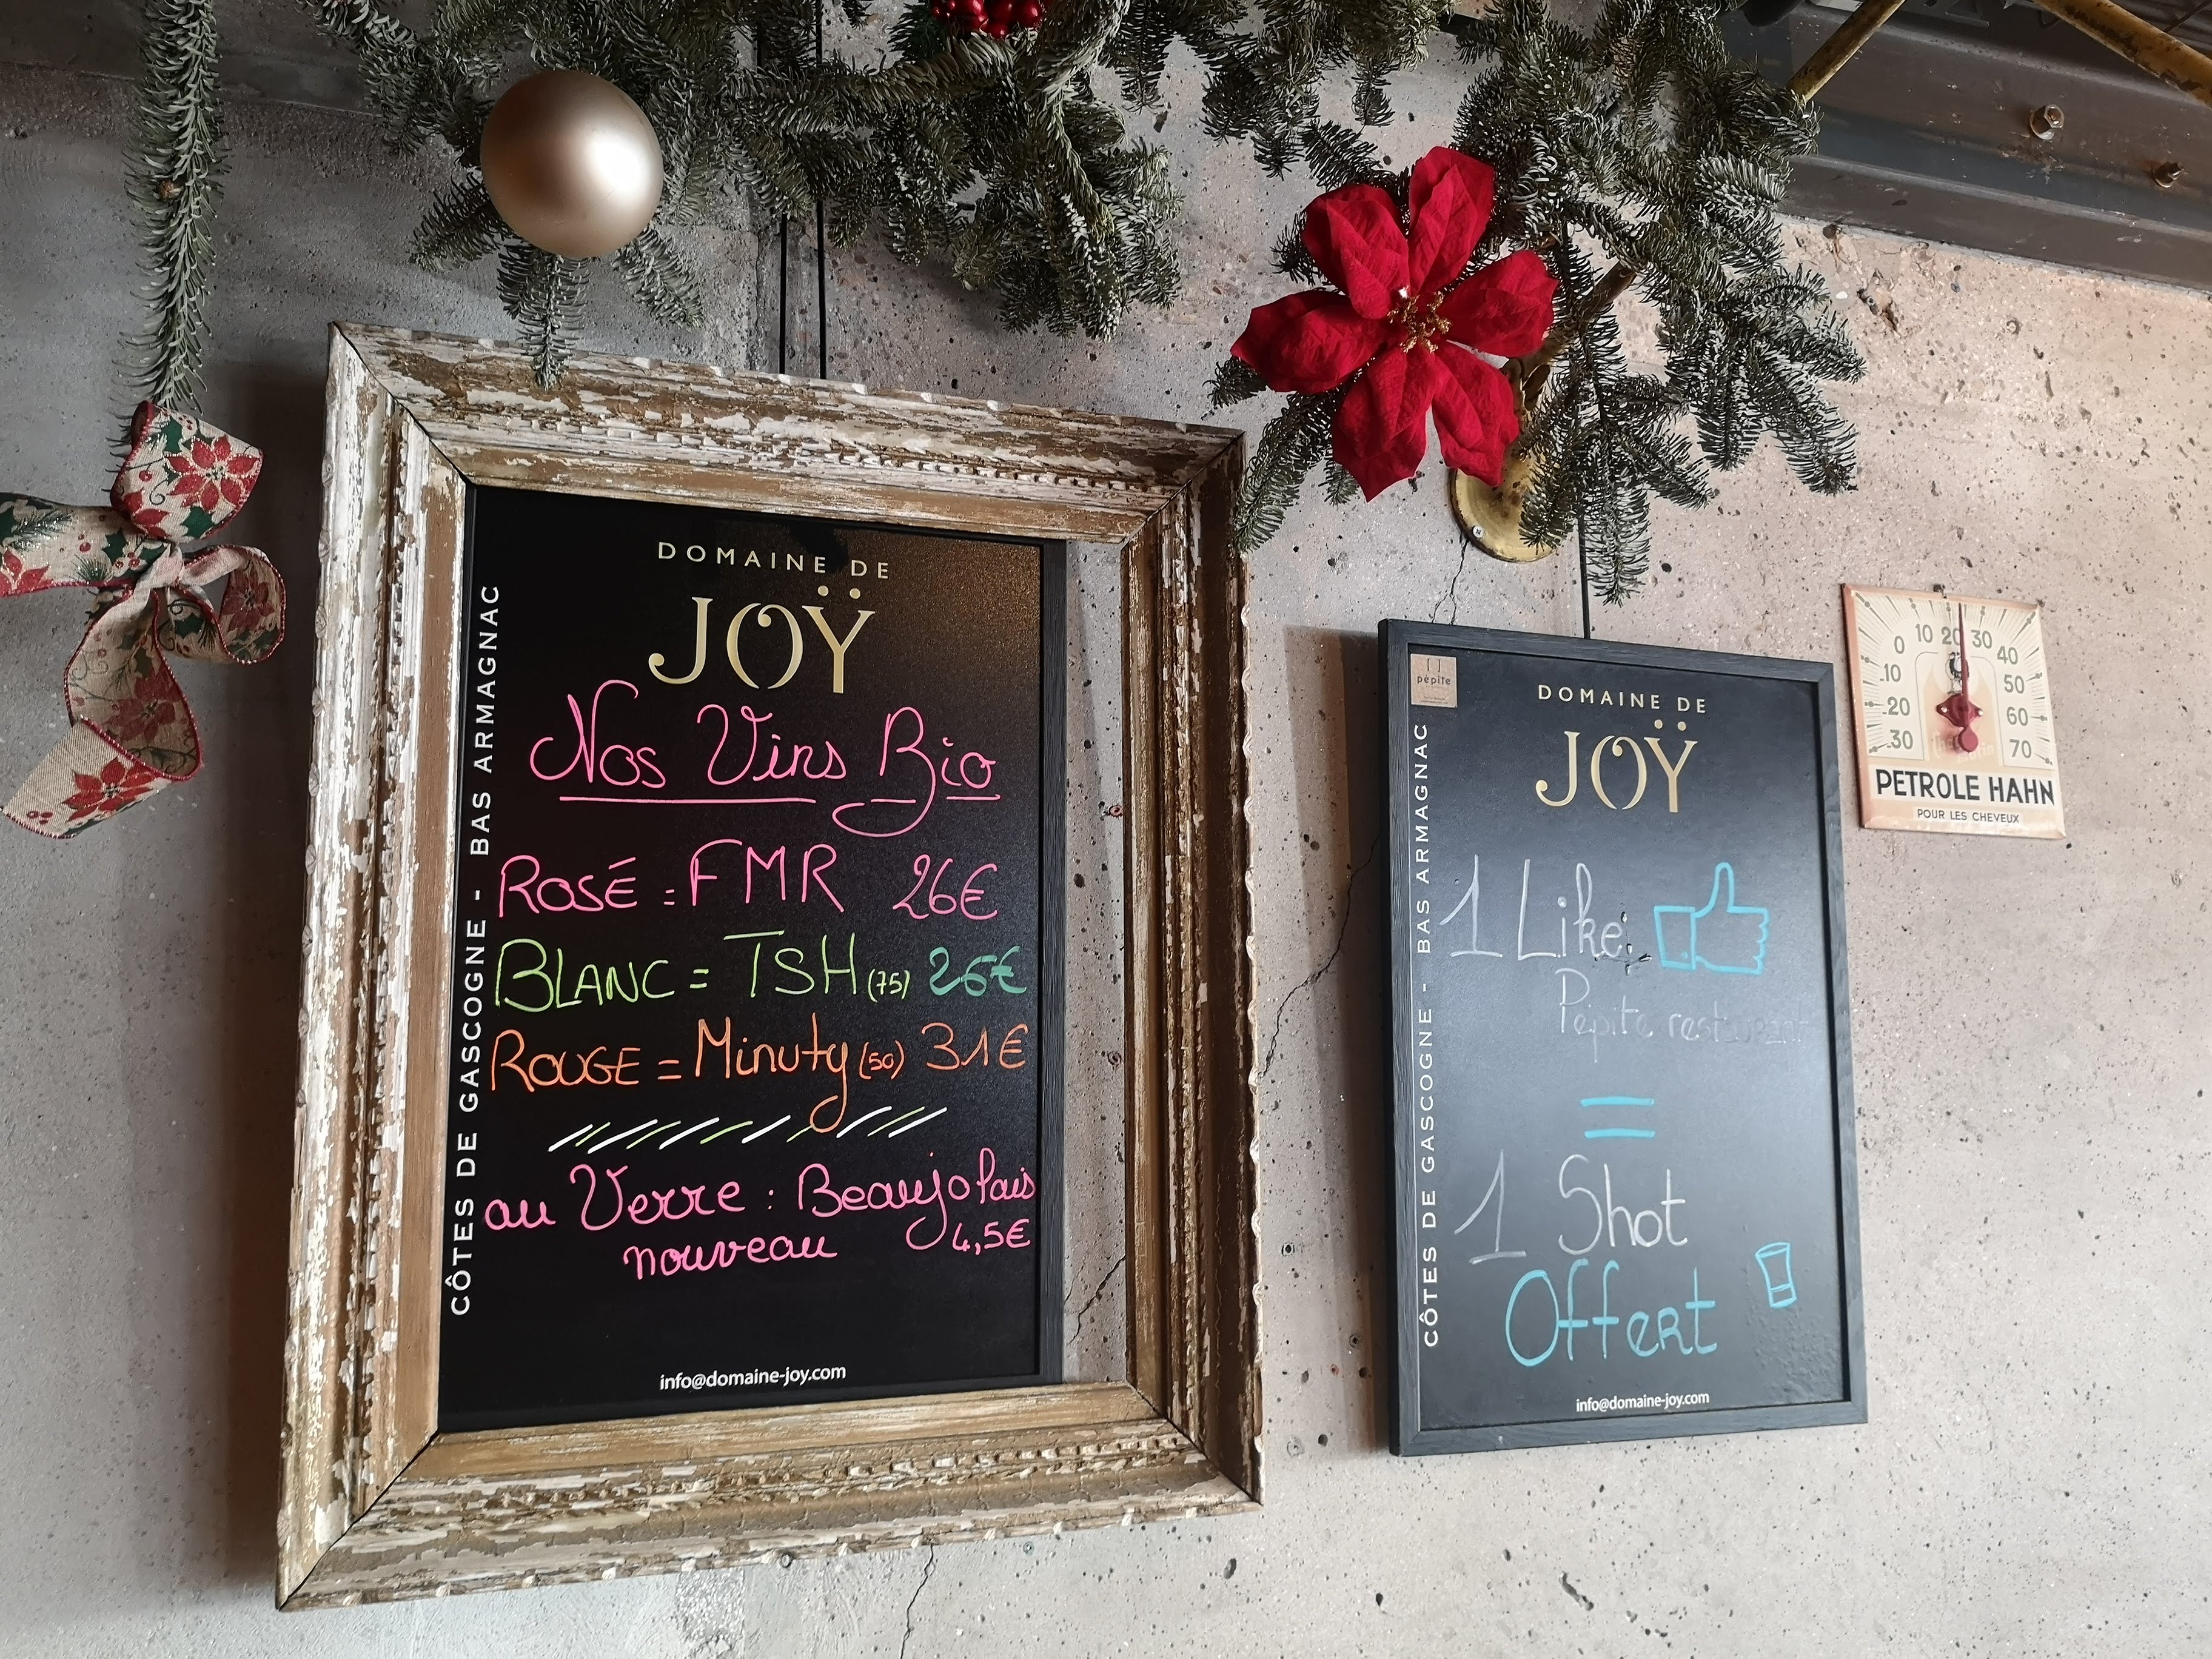 DOMAINE DE
JOŸ
CÔTES DE GASCOGNE - BAS ARMAGNAC
Nos Vins Bio
ROSÉ : FMR 26€
BLANC = TSH (75) 26€
ROUGE = Minuty (50) 31€
au Verre : Beaujolais
nouveau 4,5€
info@domaine-joy.com
pépite
DOMAINE DE
JOŸ
CÔTES DE GASCOGNE - BAS ARMAGNAC
1 Like
Pépite restaurant
=
1 Shot
Offert
info@domaine-joy.com
30 20 10 0 10 20 30 40 50 60 70
PETROLE HAHN
POUR LES CHEVEUX